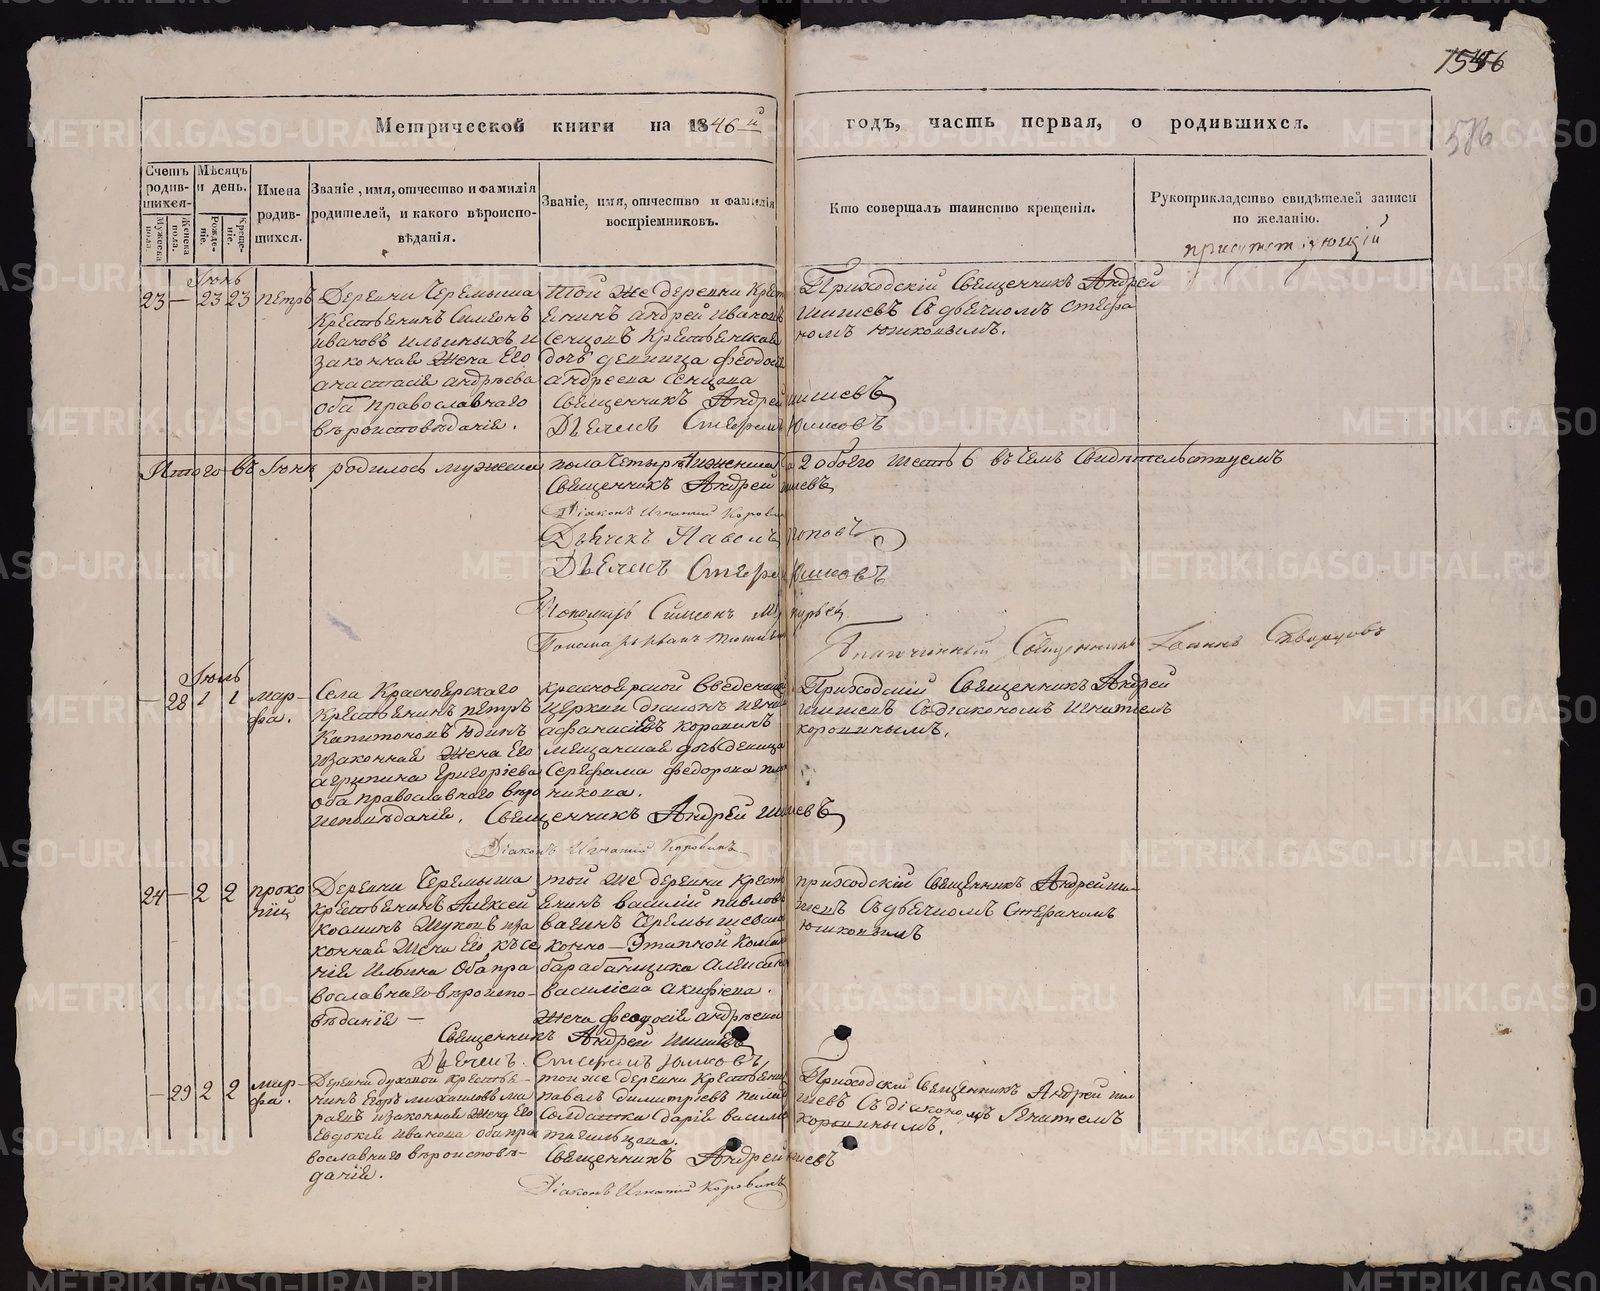 1546
516
Метрической книги на 1846й годъ, часть первая, о родившихся.
Счетъ родившихся.
Мужеска пола.
Женска пола.
Мѣсяцъ и день.
Рожденіе.
Крещеніе.
Имена родившихся.
Званіе, имя, отчество и фамилія родителей, и какого вѣроисповѣданія.
Званіе, имя, отчество и фамилія воспріемниковъ.
Кто совершалъ таинство крещенія.
Рукоприкладство свидѣтелей записи по желанію.
Іюнь
23 — 23 23 Петръ
Деревни Черемыша
Крестьянинъ Симеонъ
Ивановъ Ильиныхъ и
законная Жена Его
Анастасія Андрѣева
оба православнаго
вѣроисповѣданія.
Той же деревни Крест
янинъ Андрей Иванов
Сенцовъ Крестьянская
дочь девица Феодос
Андреева Сенцова
Священникъ Андрей Шишевъ
Дьячекъ Стефанъ Юшковъ
Приходскій Священникъ Андрей
Шишевъ Съ дьячкомъ Стефа
номъ Юшковымъ.
Итого въ Іюнѣ родилось мужеска пола четыре женска 2 обоего шесть 6 въ чемъ Свидѣтельствуемъ
Священникъ Андрей Шишевъ
Діаконъ Игнатій Коровин
Дьячекъ Павелъ Поповъ
Дьячекъ Стефан Юшковъ
Пономарь Симеонъ
Пономарь Иванъ
Благочинный Священникъ Іоаннъ
Іюль
— 28 1 1 Мар-
фа.
Села Красноярскаго
Крестьянинъ Петръ
Капитоновъ Юдинъ
и законная Жена Его
Агрипина Григоріева
оба православнаго вѣро
исповѣданія.
Красноярской Введенской
Церкви діаконъ Игна
Афанасіевъ Коровинъ
мещанская дочь девица
Серафима Федорова
никова.
Священникъ Андрей Шишевъ
Діаконъ Игнатій Коровинъ
Приходскій Священникъ Андрей
Шишевъ Съ діакономъ Игнатіемъ
Коровинымъ.
24 — 2 2 Проко
пій
Деревни Черемыша
Крестьянинъ Алексей
Козминъ Жуковъ и за
конная Жена Его Ксе
нія Ильина Оба пра
вославнаго вѣроиспо-
вѣданія —
той же деревни Крест
янинъ Василій Павлов
Вагинъ Черемышевска
конно-Этапной Коман
барабанщика Алексан
Василіева Акифіева.
Жена Феодосія Андрѣева
Священникъ Андрей Шишевъ
Дьячекъ Стефанъ Юшковъ
приходскій Священникъ Андрей Ши-
шевъ Съ дьячкомъ Стефаномъ
Юшковымъ
— 29 2 2 Мар-
фа.
Деревни Духовой Крестья-
нинъ Егоръ Михаиловъ
и законная Жена Его
Евдокія Иванова оба пра
вославнаго вѣроисповѣ-
данія.
той же деревни Крестьяни
Павелъ Димитріевъ
Солдатка Дарія Василіе
Священникъ Андрей Шишевъ
Діаконъ Игнатій Коровинъ
Приходскій Священникъ Андрей Ши
шевъ Съ діакономъ Игнатіемъ
Коровинымъ.
METRIKI.GASO-URAL.RU